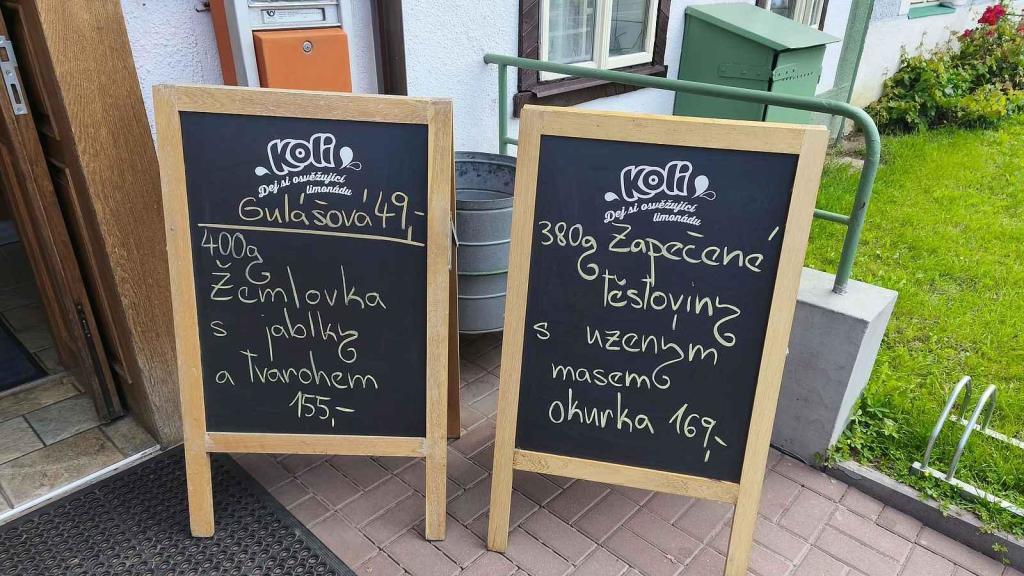 Koli
Dej si osvěžující
limonádu
Gulášová 49,-
400g
Žemlovka
s jablky
a tvarohem
155,-
Koli
Dej si osvěžující
limonádu
380g Zapečené
těstoviny
s uzeným
masem,
okurka 169,-